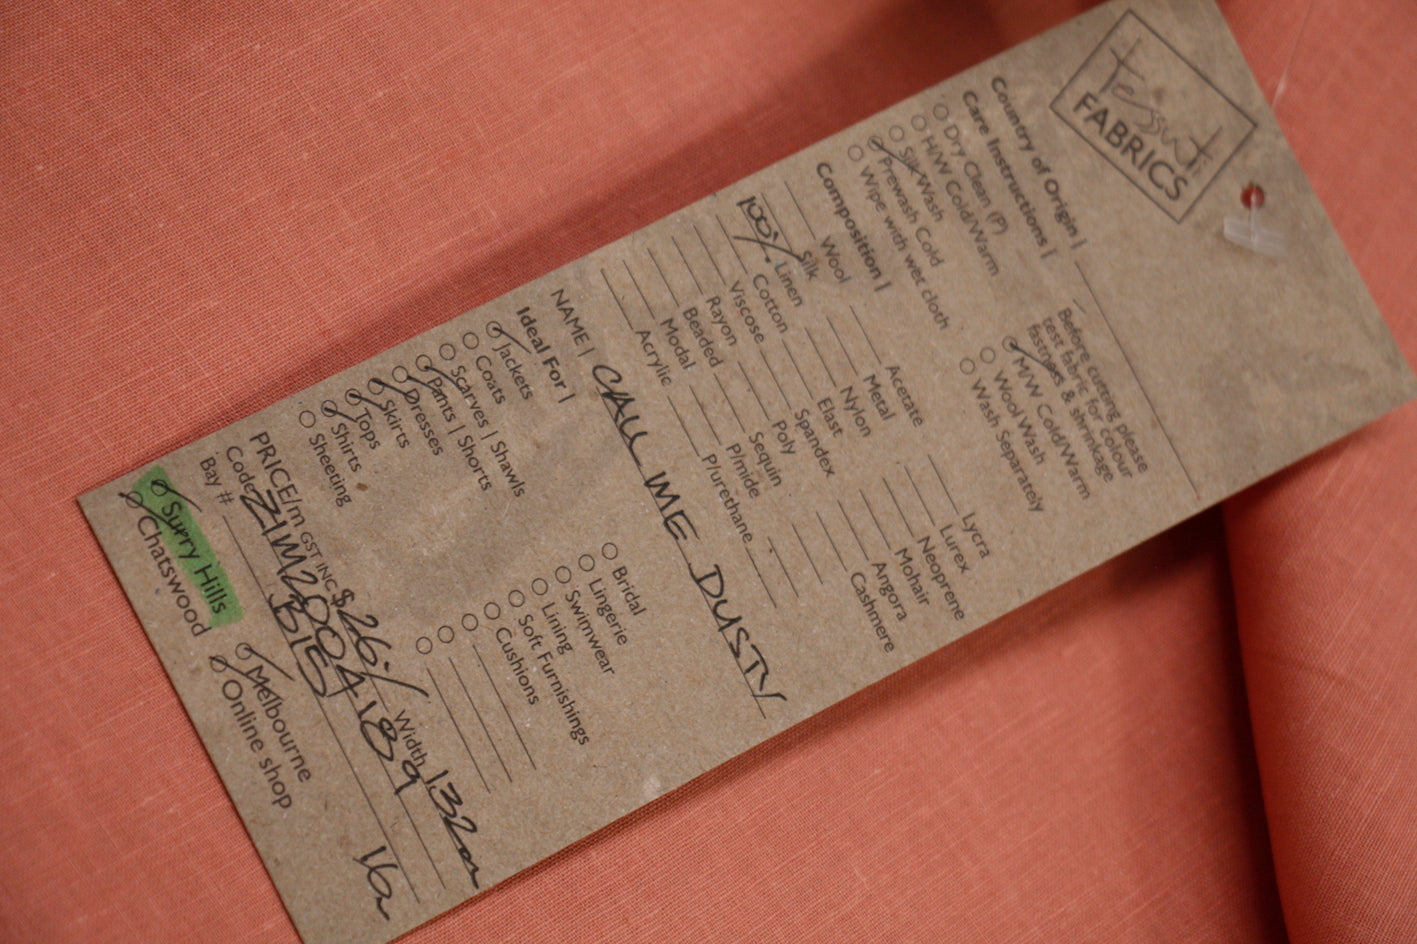 tessuti
FABRICS
Country of Origin |
Care Instructions |
Dry Clean (P)
H/W Cold/Warm
Silk Wash
Prewash Cold
Wipe with wet cloth
Before cutting please
test fabric for colour
fastness & shrinkage
M/W Cold/Warm
Wool Wash
Wash Separately
Composition |
Wool Acetate Lycra
Silk Metal Lurex
100% Linen Nylon Neoprene
Cotton Elast Mohair
Viscose Spandex Angora
Rayon Poly Cashmere
Beaded Sequin
Modal P/mide
Acrylic P/urethane
NAME | CALL ME DUSTY
Ideal For |
Jackets Bridal
Coats Lingerie
Scarves | Shawls Swimwear
Pants | Shorts Lining
Dresses Soft Furnishings
Skirts Cushions
Tops
Shirts
Sheeting
PRICE/m GST INC $26 Width 132cm
Code
Bay #
Surry Hills Melbourne
Chatswood Online shop